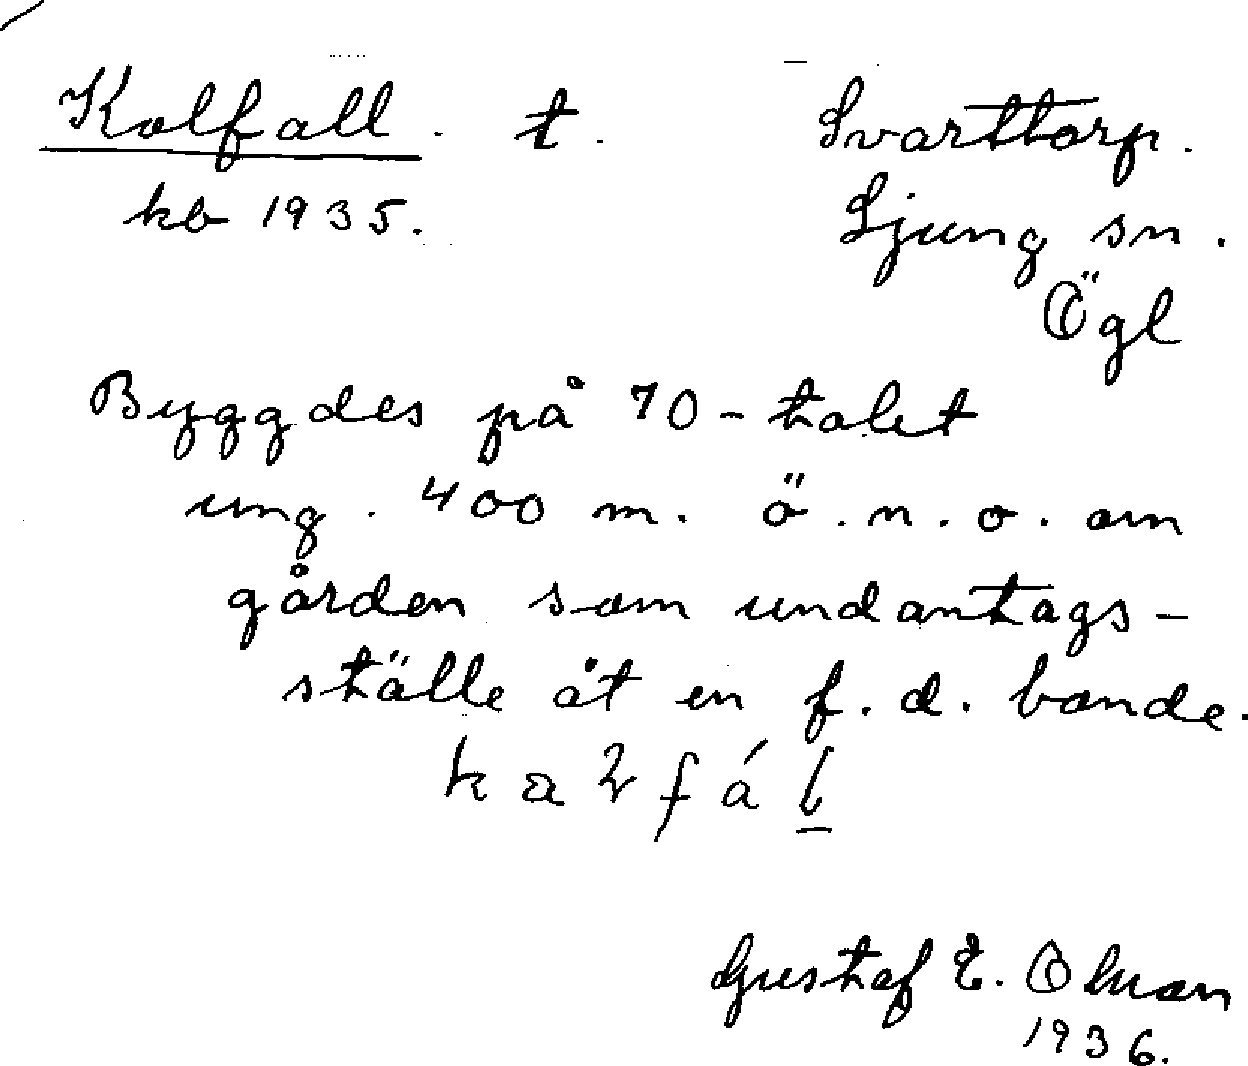 Kolfall. t. Svarttorp.
kb 1935. Ljung sn.
Ögl
Byggdes på 70-talet
ung. 400 m. ö.n.o. om
gården som undantags-
ställe åt en f.d. bonde.
Gustaf E. Olsson
1936.